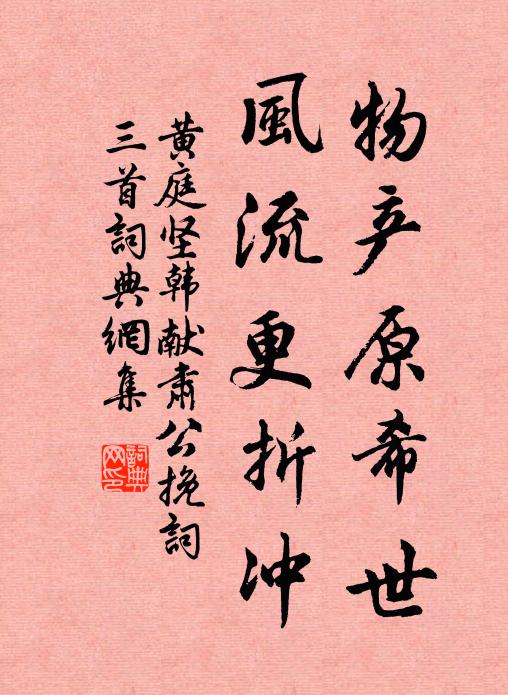 物产原希世
風流更折冲
黄庭坚韩献肃公挽詞
三首詞典網集
詞典網印